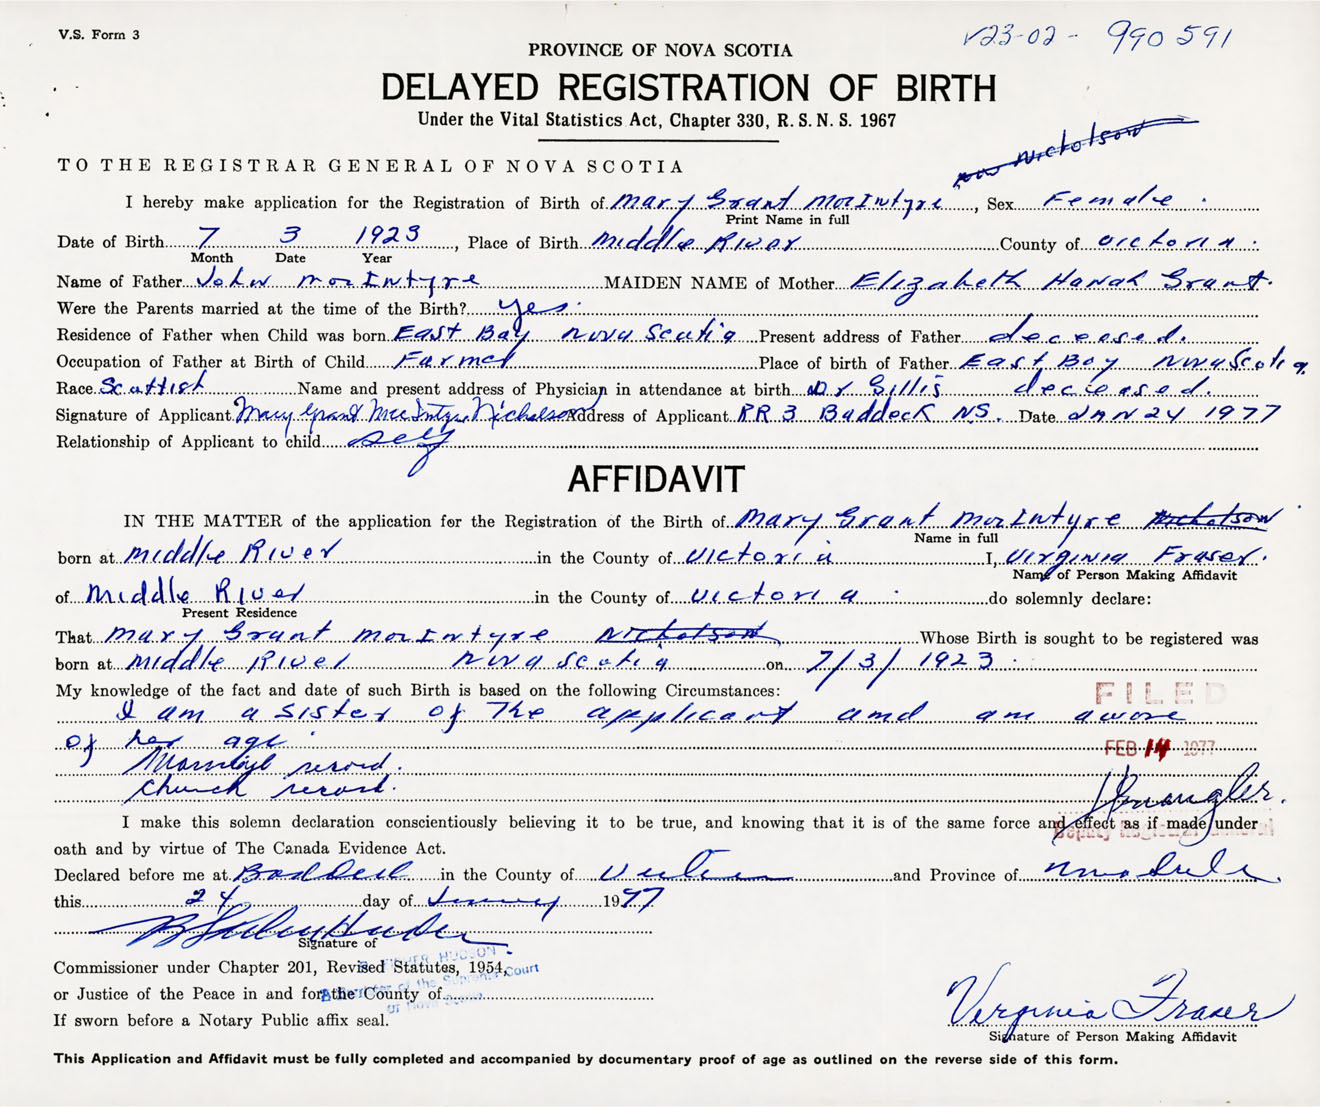 V.S. Form 3
v23-02 - 990 591
PROVINCE OF NOVA SCOTIA
DELAYED REGISTRATION OF BIRTH
Under the Vital Statistics Act, Chapter 330, R. S. N. S. 1967
Nicholson
TO THE REGISTRAR GENERAL OF NOVA SCOTIA
I hereby make application for the Registration of Birth of Mary Grant MacIntyre, Sex Female.
Print Name in full
Date of Birth 7 3 1923, Place of Birth Middle River County of Victoria.
Month Date Year
Name of Father John MacIntyre MAIDEN NAME of Mother Elizabeth Hanah Grant.
Were the Parents married at the time of the Birth? Yes.
Residence of Father when Child was born East Bay Nova Scotia Present address of Father deceased.
Occupation of Father at Birth of Child Farmer Place of birth of Father East Bay Nova Scotia
Race Scottish Name and present address of Physician in attendance at birth Dr Gillis deceased.
Signature of Applicant Mary Grant MacIntyre Nicholson Address of Applicant RR 3 Baddeck N.S. Date JAN 24 1977
Relationship of Applicant to child self
AFFIDAVIT
IN THE MATTER of the application for the Registration of the Birth of Mary Grant MacIntyre Nicholson
Name in full
born at Middle River in the County of Victoria I, Virginia Fraser.
Name of Person Making Affidavit
of Middle River in the County of Victoria. do solemnly declare:
Present Residence
That Mary Grant MacIntyre Nicholson Whose Birth is sought to be registered was
born at Middle River Nova Scotia on 7/3/1923.
My knowledge of the fact and date of such Birth is based on the following Circumstances:
FILED
I am a sister of The applicant and am aware
of her age.
FEB 14 1977
Marriage record.
Church record.
I make this solemn declaration conscientiously believing it to be true, and knowing that it is of the same force and effect as if made under
Deputy Registrar General
oath and by virtue of The Canada Evidence Act.
Declared before me at Baddeck in the County of Victoria and Province of Nova Scotia
this 24 day of January 1977
Signature of
Commissioner under Chapter 201, Revised Statutes, 1954,
HUDSON
A Barrister of the Supreme Court
of Nova Scotia
or Justice of the Peace in and for the County of
If sworn before a Notary Public affix seal.
Virginia Fraser
Signature of Person Making Affidavit
This Application and Affidavit must be fully completed and accompanied by documentary proof of age as outlined on the reverse side of this form.